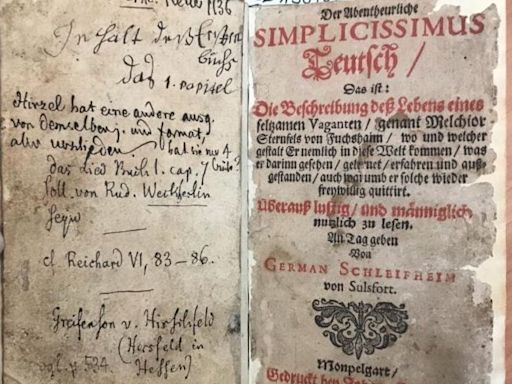 Inhalt deß Ersten
Buchs
das 1. Capitel
Hirzel hat eine andere ausg.
von demselben j. und format,
aber verschieden.
das Lied Buch 1. cap. 7
soll von Rud. Weckherlin
seyn
cf Reichard VI, 83–86.
Greifenson v. Hirschfeld
(Hersfeld in
vgl. p. 524. Hessen)
Der Abentheurliche
SIMPLICISSIMUS
Teutsch /
Das ist:
Die Beschreibung deß Lebens eines
seltzamen Vaganten / genant Melchior
Sternfels von Fuchshaim / wo und welcher
gestalt Er nemlich in diese Welt kommen / was
er darinn gesehen / gelernet / erfahren und auß-
gestanden / auch warumb er solche wieder
freywillig quittirt.
Überauß lustig / und männiglich
nutzlich zu lesen.
An Tag geben
Von
GERMAN SCHLEIFHEIM
von Sulsfort.
Monpelgart /
Gedruckt bey